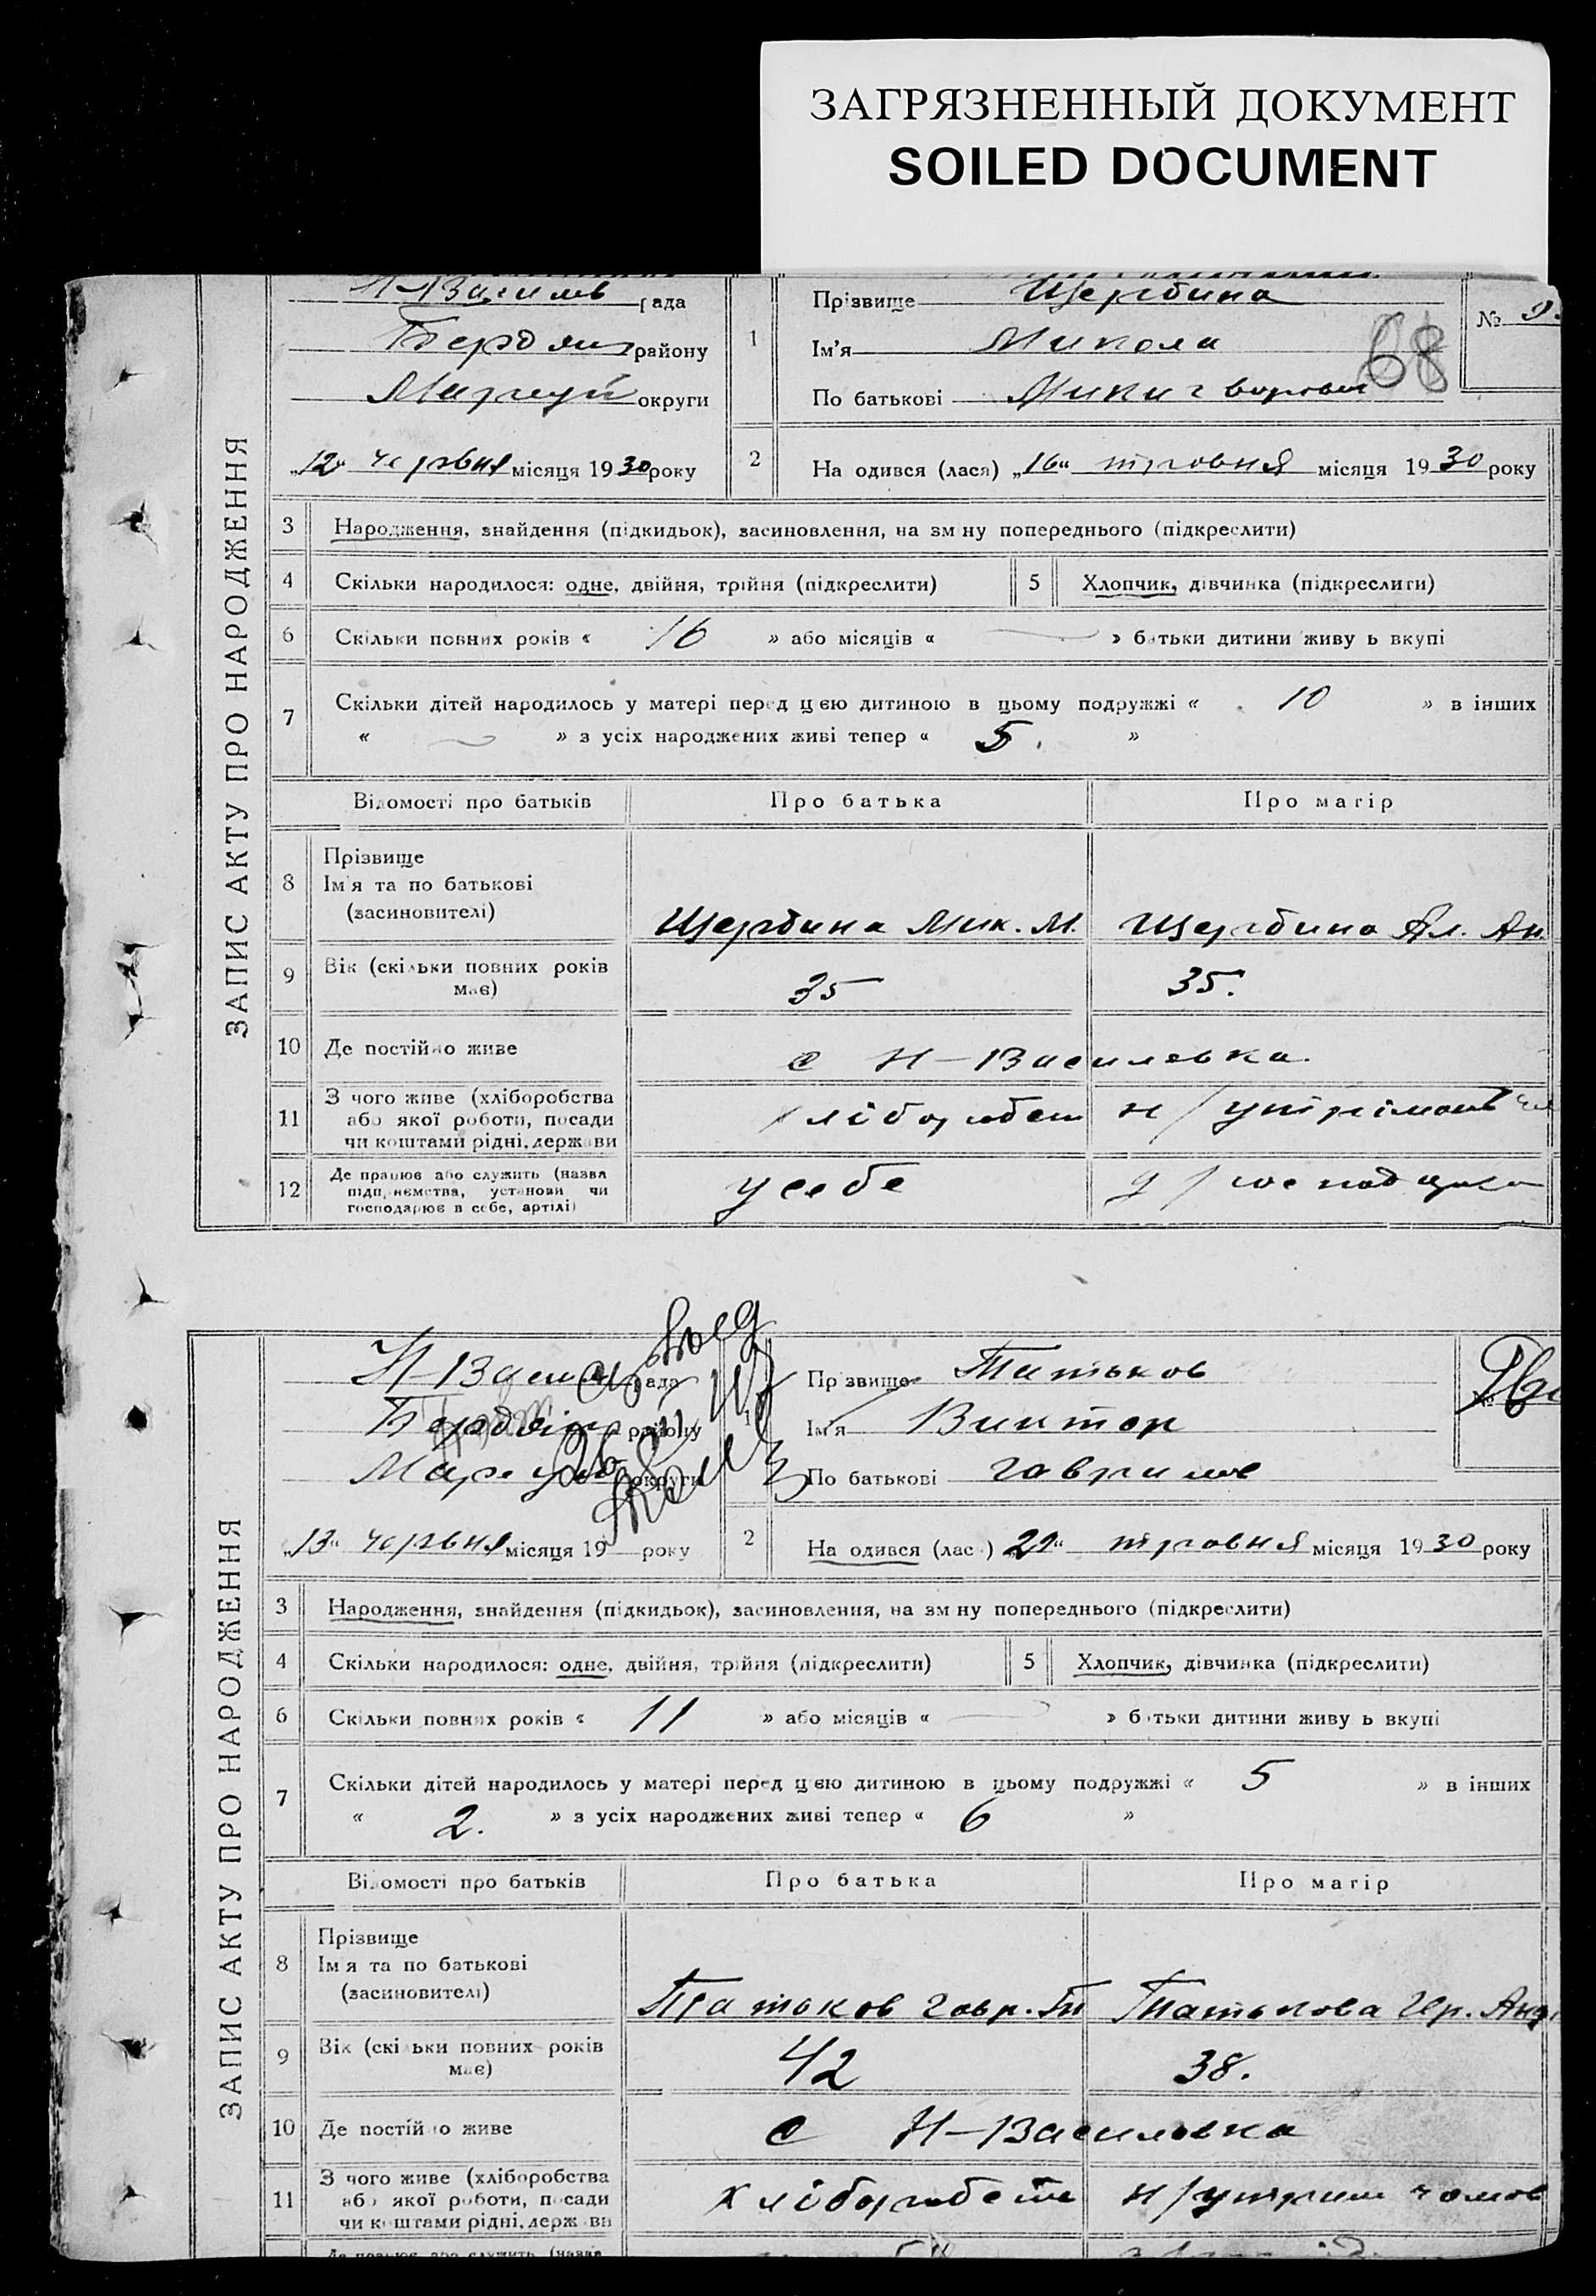 ЗАГРЯЗНЕННЫЙ ДОКУМЕНТ
SOILED DOCUMENT
ЗАПИС АКТУ ПРО НАРОДЖЕННЯ
Н-Васил рада
Бердян району
Маріуп округи
„12“ червня місяця 1930 року
1 Прізвище Щербина
Ім'я Микола
По батькові
68
№
2 На одився (лася) „16“ травня місяця 1930 року
3 Народження, знайдення (підкидьок), засиновлення, на зм ну попереднього (підкреслити)
4 Скільки народилося: одне, двійня, трійня (підкреслити) 5 Хлопчик, дівчинка (підкреслити)
6 Скільки повних років « 16 » або місяців « — » батьки дитини живу ь вкупі
7 Скільки дітей народилось у матері перед цією дитиною в цьому подружжі « 10 » в інших
« — » з усіх народжених живі тепер « 5. »
Відомості про батьків Про батька Про матір
8 Прізвище
Ім'я та по батькові
(засиновителі)
Щербина Мик. М. Щербина Ял. Ан.
9 Вік (скільки повних років
має)
35 35.
10 Де постійно живе с Н-Василевка
11 З чого живе (хліборобства
або якої роботи, посади
чи коштами рідні, держави
хлібороб н/утриман
12 Де працює або служить (назва
підприємства, установи чи
господарює в себе, артілі)
у себе
ЗАПИС АКТУ ПРО НАРОДЖЕННЯ
Н-Васил рада
Бердян району
Маріуп округи
„13“ червня місяця 19— року
1 Пр звище Татьков
Ім'я Виктор
По батькові Гаврилов
№
2 На одився (лас ) „29“ травня місяця 1930 року
3 Народження, знайдення (підкидьок), засиновлення, на зм ну попереднього (підкреслити)
4 Скільки народилося: одне, двійня, трійня (підкреслити) 5 Хлопчик, дівчинка (підкреслити)
6 Скільки повних років « 11 » або місяців « — » батьки дитини живу ь вкупі
7 Скільки дітей народилось у матері перед цією дитиною в цьому подружжі « 5 » в інших
« 2. » з усіх народжених живі тепер « 6 »
Відомості про батьків Про батька Про матір
8 Прізвище
Ім'я та по батькові
(засиновителі)
Татьков Гавр. Татькова Ир. Анд
9 Вік (скільки повних років
має)
42 38.
10 Де постійно живе с Н-Василевка
11 З чого живе (хліборобства
або якої роботи, посади
чи коштами рідні, держави
хлібороб н/утрим чолов
Де працює або служить (назва